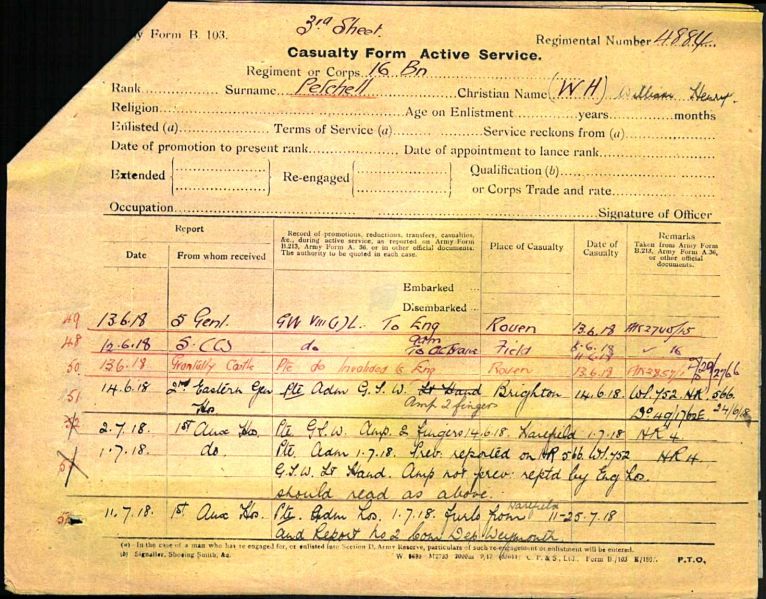 3rd Sheet.
y Form B. 103.
Regimental Number 4884
Casualty Form Active Service.
Regiment or Corps 16 Bn
Rank Surname Petchell Christian Name (W H) William Henry.
Religion Age on Enlistment years months
Enlisted (a) Terms of Service (a) Service reckons from (a)
Date of promotion to present rank Date of appointment to lance rank
Extended Re-engaged Qualification (b)
or Corps Trade and rate
Occupation Signature of Officer
Report
Date From whom received
Record of promotions, reductions, transfers, casualties, &c., during active service, as reported on Army Form B.213, Army Form A. 36, or in other official documents. The authority to be quoted in each case.
Place of Casualty
Date of Casualty
Remarks
Taken from Army Form B.213, Army Form A.36, or other official documents.
Embarked
Disembarked
49 13.6.18 5 Genl. GW VIII(c)L. To Eng Rouen 13.6.18
48 12.6.18 5 CCS do adm Field 5.6.18 16
50 13.6.18 Castle Pte do Invalided to Eng Rouen 13.6.18
51 14.6.18 2nd Eastern Gen Hos Pte Adm G.S.W. Lt Hand Brighton 14.6.18 WL 752 HR 566
Amp 2 fingers
24/6/18
2.7.18 1st Aux Hos. Pte G.S.W. Amp. 2 fingers 14.6.18. Harefield 1.7.18 HR 4
1.7.18. do Pte. Adm 1.7.18. Prev. reported on HR 566 WL 752 HR 4
G.S.W. Lt Hand. Amp not prev: reptd by Eng Hos.
should read as above.
11.7.18 1st Aux Hos Pte. Adm Hos. 1.7.18. furlo from Harefield 11-25.7.18
and Report No 2 Com Dep Weymouth
(a) In the case of a man who has re-engaged for, or enlisted into Section D, Army Reserve, particulars of such re-engagement or enlistment will be entered.
(b) Signaller, Shoeing Smith, &c.
P.T.O.